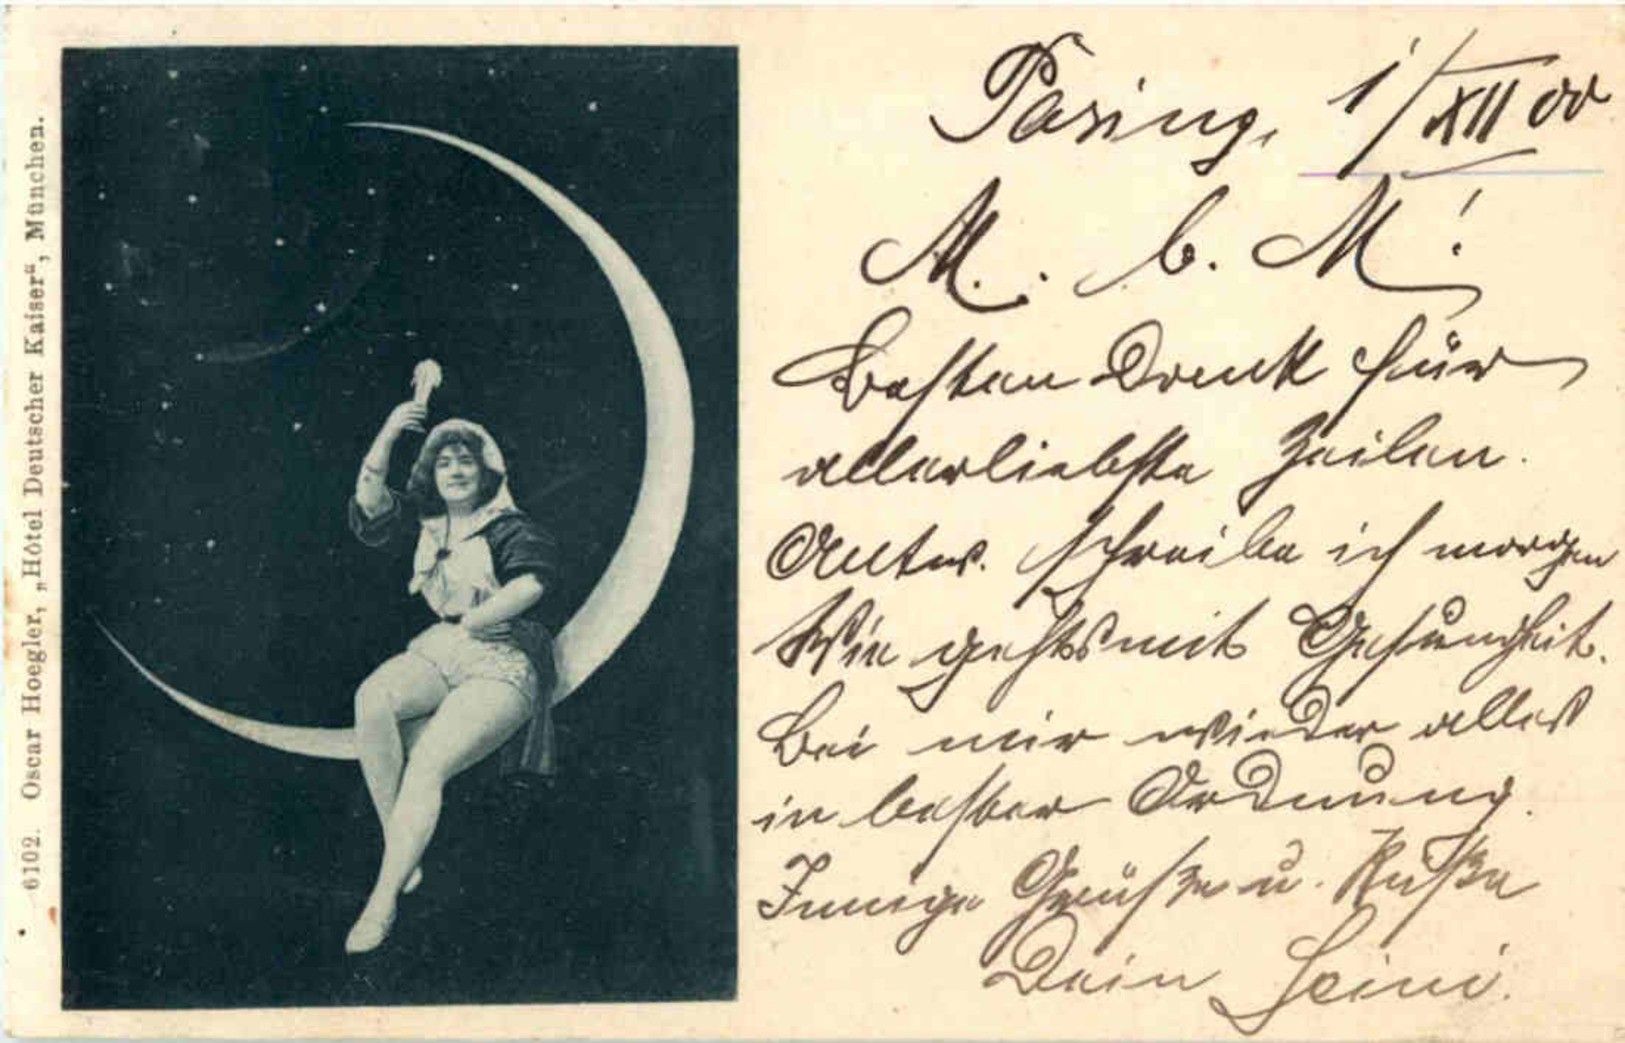 6102. Oscar Hoegler, „Hôtel Deutscher Kaiser“, München.
Pasing, 1/XII 00
M. b. M!
Besten Dank für
allerliebste Zeilen.
Antw. schreibe ich morgen
Wie gehts mit Gesundheit.
Bei mir wieder alles
in bester Ordnung.
Innige Grüße u. Küße
Dein Heini.